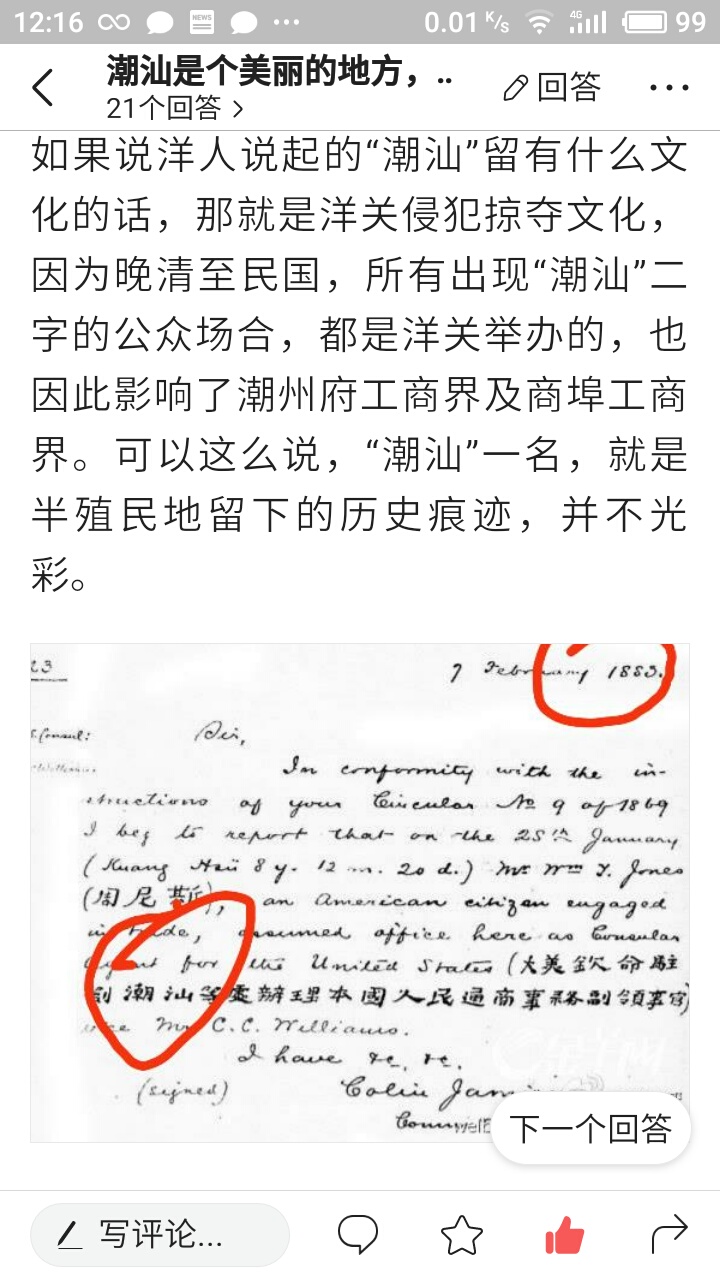 12:16
NEWS
0.01 K/s
4G
99
潮汕是个美丽的地方，..
21个回答 >
回答
如果说洋人说起的“潮汕”留有什么文
化的话，那就是洋关侵犯掠夺文化，
因为晚清至民国，所有出现“潮汕”二
字的公众场合，都是洋关举办的，也
因此影响了潮州府工商界及商埠工商
界。可以这么说，“潮汕”一名，就是
半殖民地留下的历史痕迹，并不光
彩。
23
7 February 1883.
Consul:
Sir,
In conformity with the in-
structions of your Circular No 9 of 1869
I beg to report that on the 25th January
(Kuang Hsü 8 y. 12 m. 20 d.) Mr Wm Y. Jones
(周尼斯), an American citizen engaged
in trade, assumed office here as Consular
Agent for the United States (大美欽命駐
劄潮汕等處辦理本國人民通商事務副領事官)
vice Mr C.C. Williams.
I have &c, &c.
(signed) Colin Jam
Comm
下一个回答
写评论...